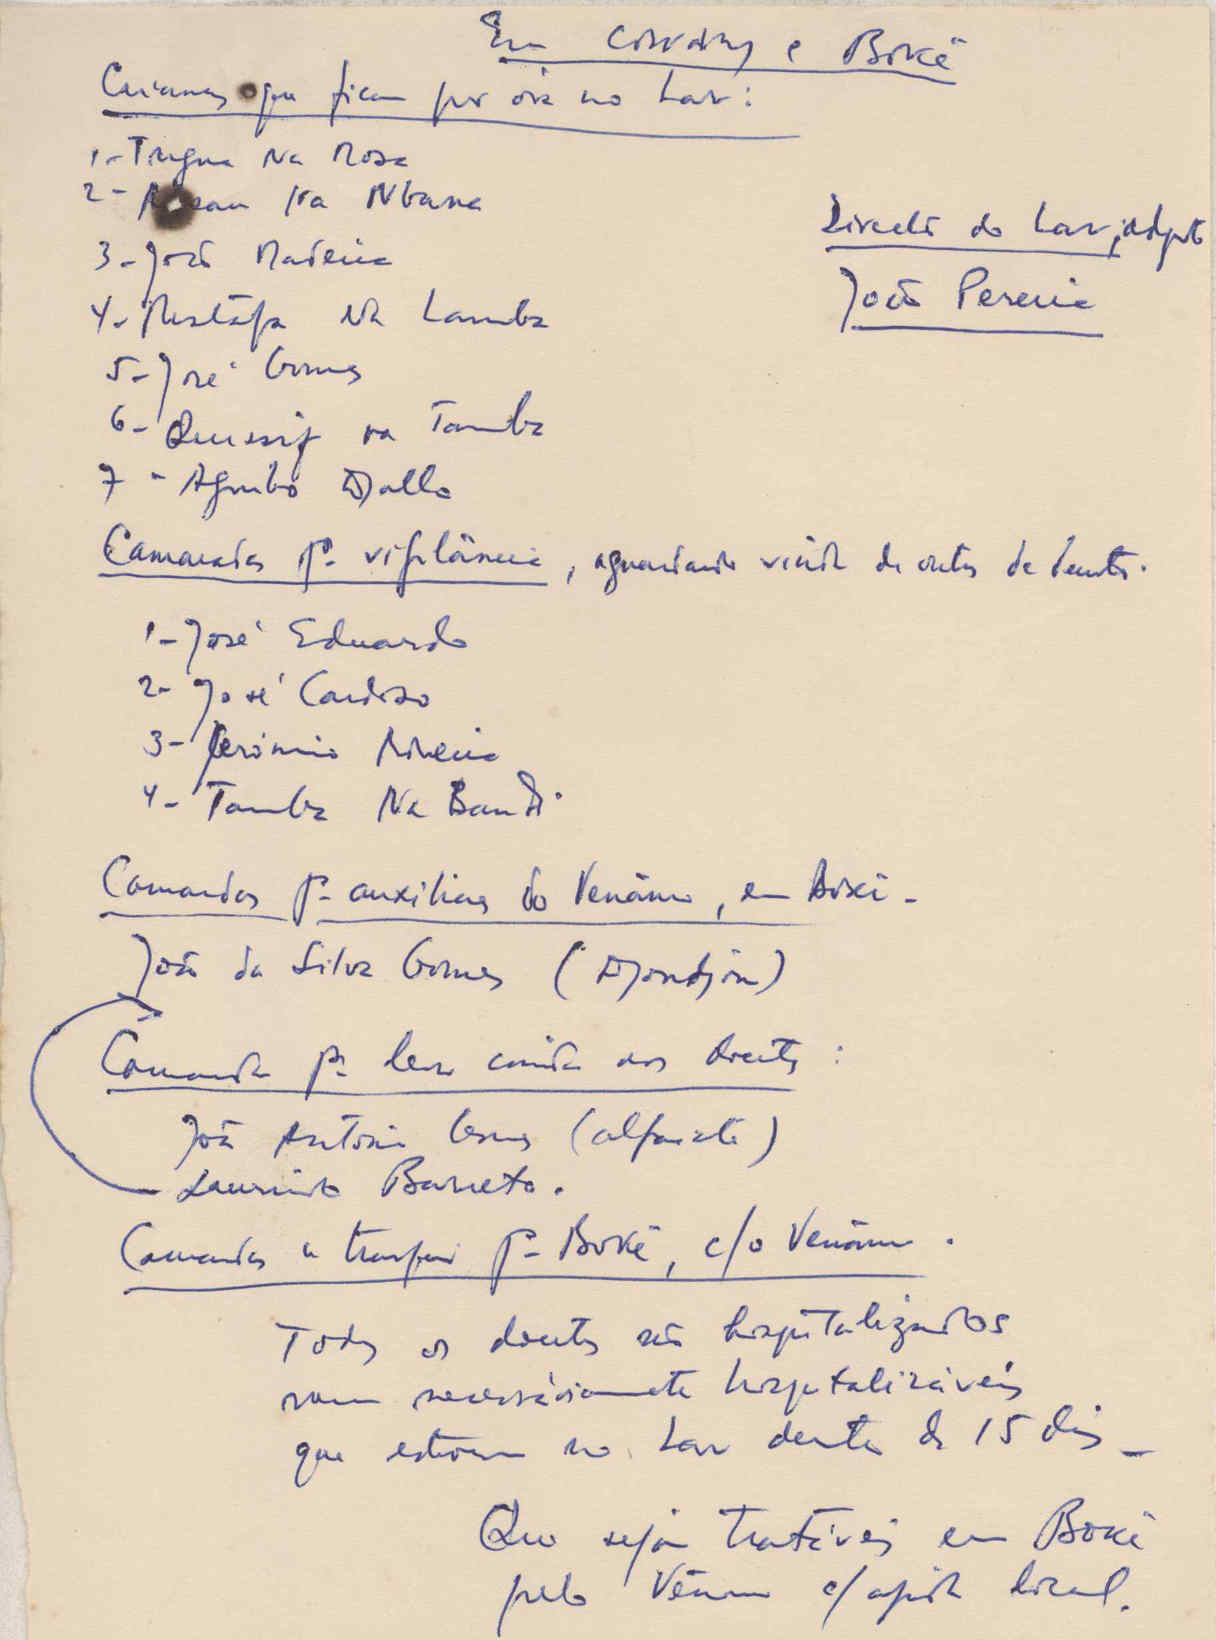 Em Conakry e Boké
Crianças que ficam por ora no Lar:
1- Tngna Na Rosa
2- Na Nbana
Director do Lar, adjunto
3- João Madeira
João Pereira
4- Mustáfa Na Lamba
5- José Gomes
6- na Tamba
7 - Agnibo Djallo
Camaradas pª vigilância, aguardando vinda de outros de dentro.
1- José Eduardo
2- José Cardoso
3- Jerónimo
4- Tamba Na Bandi
Camaradas pª auxiliar do Venâncio, em Boké -
João da Silva Gomes (Djondjon)
Camarada pª levar comida aos doentes :
João António Gomes (alfaiate)
Laurindo Barreto.
Camaradas a transferir pª Boké, c/o Venâncio.
Todos os doentes não hospitalizados
nem necessáriamente hospitalizáveis
que estavam no Lar dentro de 15 dias -
Que sejam tratáveis em Boké
pelo Venâncio c/ apoio local.